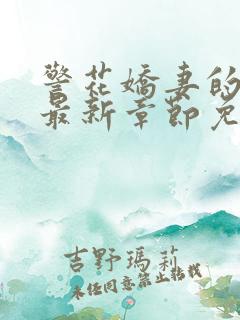 警花嬌妻的
最新章節免
吉野瑪莉
未经同意禁止转载